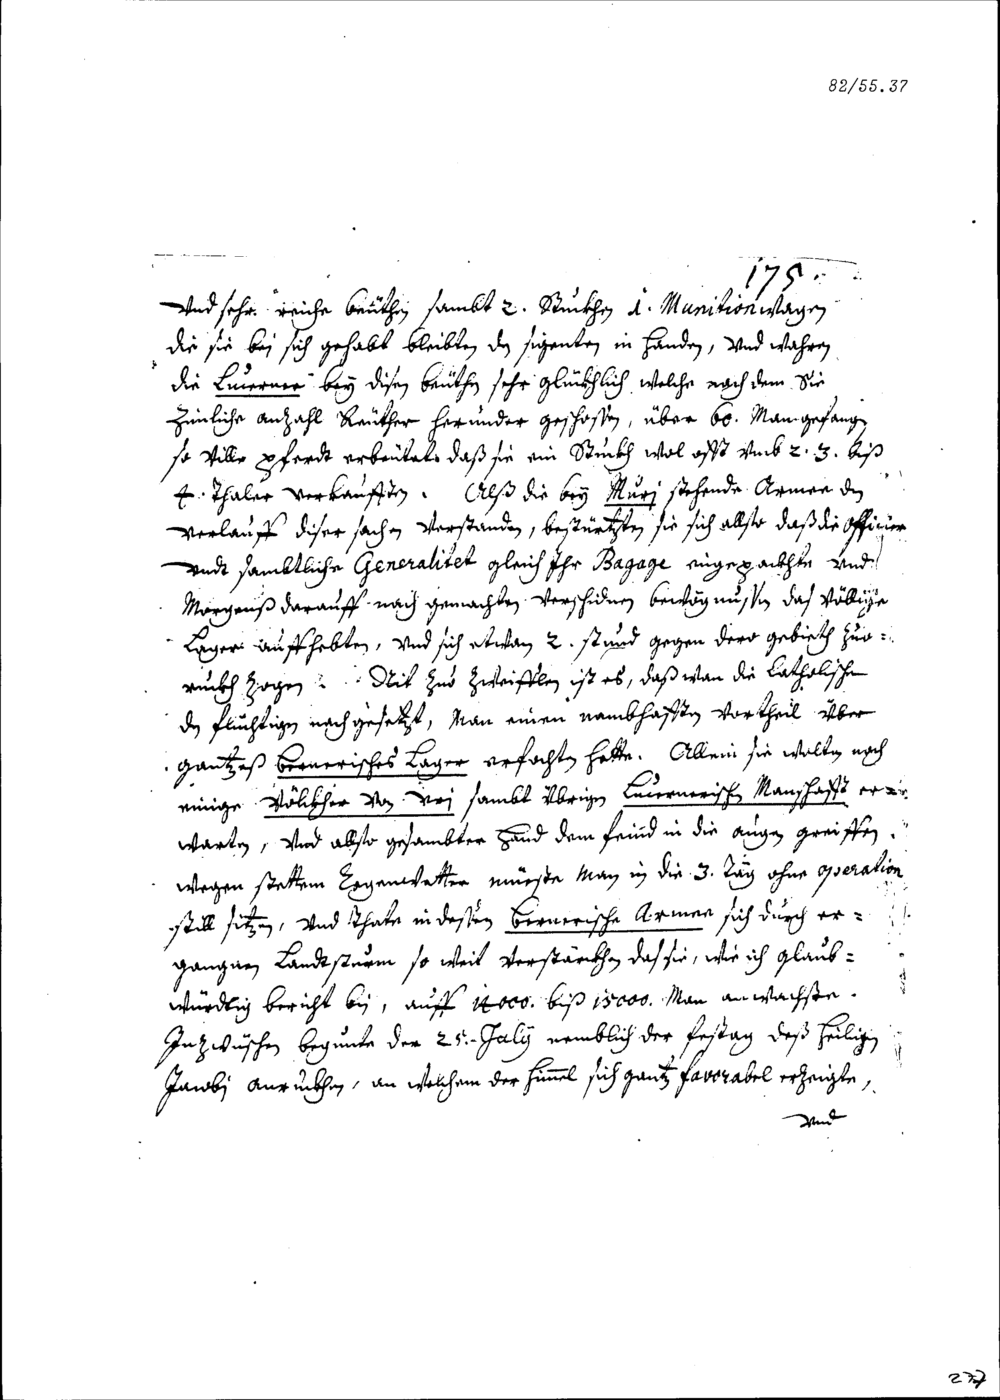 82/55.37
175.
Vnd sehr reiche beüthen sambt 2. Stuckhen d. Munitionwagen
die sie bei sich gehabt bleibten den sigenten in handen, vnd wahren
die Lucerner bey disen beüthen sehr glückhlich welche nach dem Sie
zimliche anzahl Reüther herunder geschossen, über 60. Man gefangen
so ville pferdt erbeütet daß sie ein Stuckh wol offt vmb 2. 3. biß
4. Thaler verkaufften. Alß die bey Muri stehende Armee den
verlauff diser sachen verstanden, bestürtzten sie sich allso daß die Officier
vndt sambtliche Generalitet gleich Ihr Bagage eingepackhte vnd
Morgenß darauff nach gemachten verschidnen bewögnussen das völlige
Lager auffhebten, vnd sich etwan 2. stund gegen dero gebieth zuo=
ruckh zogen. Nit zuo zweifflen ist es, daß wan die Catholische
den flüchtigen nachgesetzt, Man einen nambhafften vortheil über
gantzeß bernerisches Lager erfochten hette. Allein sie wolten noch
einige Völckher von Vri sambt übrigen Lucernerischen Manschafft er=
warten, vnd allso gesambter hand dem feind in die augen greiffen.
wegen stettem Regenwetter müeste Man in die 3. Täg ohne operation
still sitzen, vnd thate in dessen bernerische Armee sich durch er=
gangnen Landtsturm so weit verstärckhen daß sie, wie ich glaub=
würdig bericht bin, auff 14000. biß 15000. Man anwachste.
Inzwüschen begunte der 25. July nemblich der festag deß heiligen
Jacobi anruckhen, an welchem der himel sich gantz favorabel erzeigte,
vnd
237